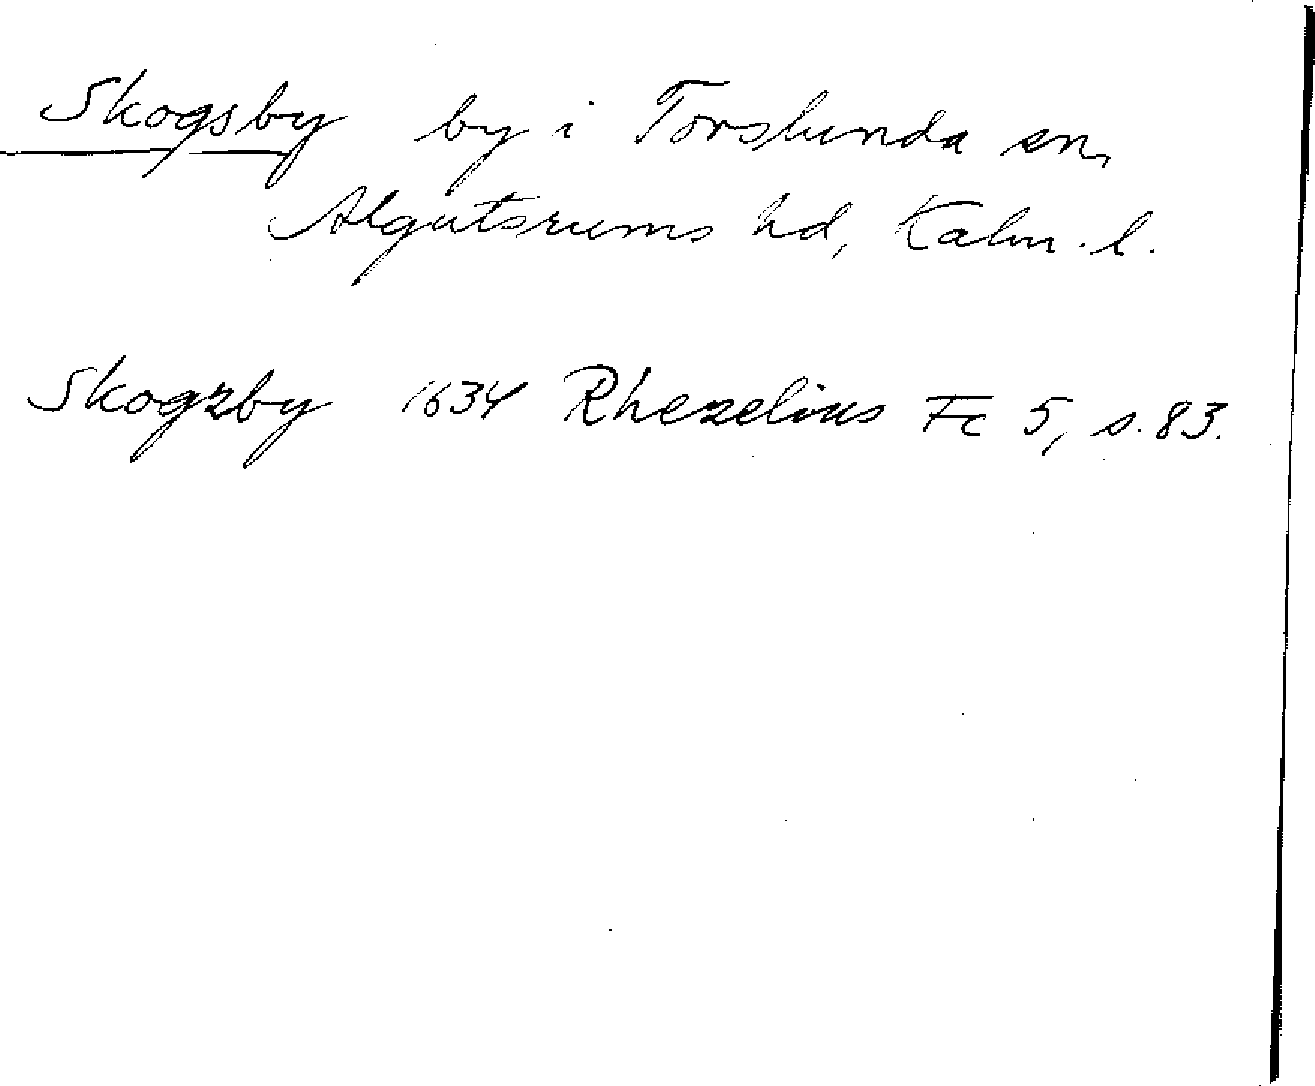 Skogsby by i Torslunda sn,
Algutsrums hd, Kalm. l.
Skogzby 1634 Rhezelius Fc 5, s. 83.